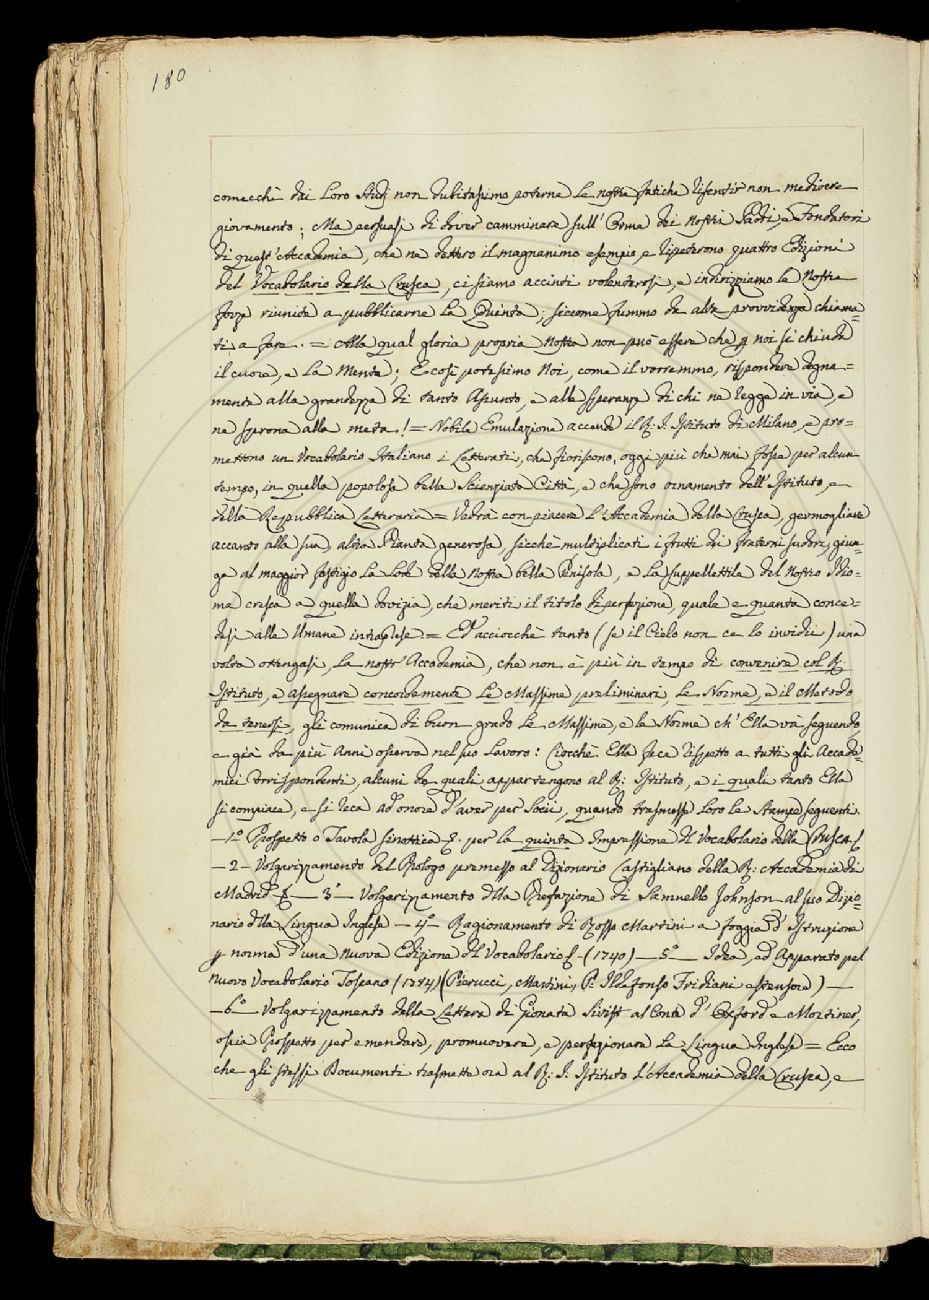 180
comecchè dai Loro Studj non dubitassimo poterne le nostre fatiche risentir non mediocre
giovamento; Ma persuasi di dover camminare sull'Orme dei Nostri Padri, e Fondatori
di quest'Accademia, che ne dettero il magnanimo esempio, e ripeterono quattro Edizioni
del Vocabolario della Crusca, ci siamo accinti volenterosi, e indirizziamo le Nostre
forze riunite a pubblicarne la Quinta; siccome fummo da alte provvidenze chiama=
ti a fare. = Alla qual gloria propria nostra non può essere che p noi si chiuda
il cuore, e la Mente; E così potessimo Noi, come il vorremmo, rispondere degna=
mente alla grandezza di tanto Assunto, e alle speranze di chi ne legge in via, e
ne sprona alla meta! = Nobile Emulazione accende il R: I. Istituto di Milano, e pro=
mettono un Vocabolario Italiano i Letterati, che fioriscono, oggi più che mai fosse per alcun
tempo, in quella popolosa bella Scienziata Città, e che sono ornamento dell'Istituto, e
della Repubblica Letteraria = Vedrà con piacere L'Accademia della Crusca, germogliare
accanto alla sua, altra Pianta generosa, sicchè multiplicati i frutti dei fraterni sudori, giun=
ga al maggior fastigio la Lode della Nostra bella Penisola, e la suppellettile del Nostro Idio=
ma cresca a quella dovizia, che meriti il titolo di perfezione, quale e quanta conce=
desi alle Umane intraprese = Ed acciocchè tanto (se il Cielo non ce lo invidii) una
volta ottengasi, la nostr'Accademia, che non è più in tempo di convenire col R:
Istituto, e assegnare concordemente Le Massime preliminari, le Norme, e il Metodo
da tenersi, gli comunica di buon grado Le Massime, e le Norme ch'Ella va seguendo,
e già da più Anni osserva nel suo Lavoro: Ciocchè Ella fece rispetto a tutti gli Accade=
mici Corrispondenti, alcuni de quali appartengono al R: Istituto, e i quali tanto Ella
si compiace, e si reca ad onore d'aver per Socii, quando trasmesse Loro le Stampe seguenti.
—1° Prospetto o Tavola sinottica &. per la quinta Impressione del Vocabolario della Crusca &
— 2 – Volgarizzamento del Prologo premesso al Dizionario Castigliano della R: Accademia di
Madrid & — 3° — Volgarizzamento dlla Prefazione di Samuello Johnson al suo Dizio=
nario dlla Lingua Inglese — 4° — Ragionamento di Rosso Martini a foggia d'Istruzione
p norma d'una nuova Edizione dl Vocabolario & – (1740) — 5° — Idea, ed Apparato pel
nuovo Vocabolario Toscano (1784) (Pierucci, Martini, P. Ildefonso Fridiani estensore) —
—6° — Volgarizzamento della Lettera di Gionata Swift al Conte d'Oxford e Mortimer,
ossia Prospetto per emendare, promuovere, e perfezionare la Lingua Inglese = Ecco
che gli stessi Documenti trasmette ora al R: I. Istituto L'Accademia della Crusca, e